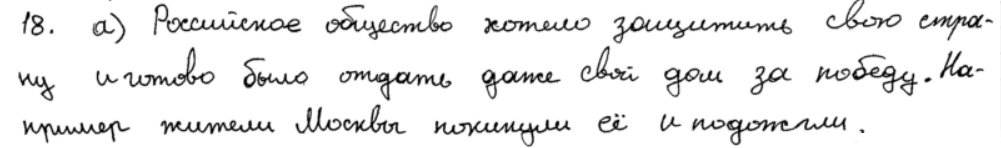 18. а) Российское общество хотело защитить свою стра-
ну и готово было отдать даже свой дом за победу. На-
пример жители Москвы покинули её и подожгли.